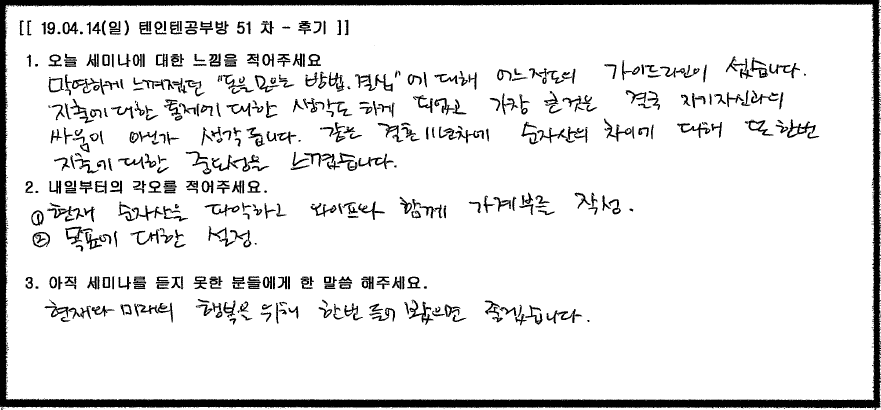 [[ 19.04.14(일) 텐인텐공부방 51 차 - 후기 ]]
1. 오늘 세미나에 대한 느낌을 적어주세요
막연하게 느껴졌던 "돈을 모으는 방법. 결심"에 대해 어느정도의 가이드라인이 섰습니다.
지출에 대한 통제에 대한 생각도 하게 되었고 가장 큰것은 결국 자기자신과의
싸움이 아닌가 생각됩니다. 같은 결혼 11년차에 순자산의 차이에 대해 또한번
지출에 대한 중요성을 느꼈습니다.
2. 내일부터의 각오를 적어주세요.
① 현재 순자산을 파악하고 와이프와 함께 가계부를 작성.
② 목표에 대한 설정.
3. 아직 세미나를 듣지 못한 분들에게 한 말씀 해주세요.
현재와 미래의 행복을 위해 한번 들어 봤으면 좋겠습니다.